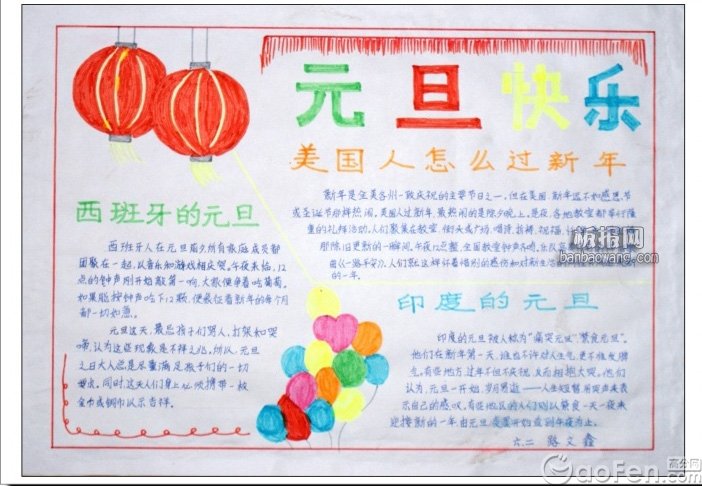 元旦快乐
美国人怎么过新年
新年是全美各州一致庆祝的主要节日之一,但在美国,新年远不如感恩节
或圣诞节那样热闹。美国人过新年,最热闹的是除夕晚上。是夜,各地教堂都举行隆
重的礼拜活动,人们聚集在教堂、街头或广场,唱诗、祈祷、祝福、
那除旧更新的一瞬间。午夜12点整,全国教堂钟声齐鸣,乐队高
曲《一路平安》。人们就这样怀着惜别的感伤和对新生活的
的一年。
西班牙的元旦
西班牙人在元旦前夕所有家庭成员都
团聚在一起,以音乐和游戏相庆贺。午夜来临,12
点的钟声刚开始敲第一响,大家便争着吃葡萄。
如果能按钟声吃下12颗,便象征着新年的每个月
都一切如意。
元旦这天,最忌孩子们骂人、打架和哭
啼,认为这些现象是不祥之兆。所以,元旦
之日大人总是尽量满足孩子们的一切
要求。同时,这天人们身上必须携带一枚
金币或铜币以示吉祥。
印度的元旦
印度的元旦被人称为“痛哭元旦”,“禁食元旦”。
他们在新年第一天,谁也不许对人生气,更不准发脾
气。有些地方过年不但不庆祝,反而相抱大哭。他们
认为,元旦一开始,岁月易逝——人生短暂,用哭声来表
示自己的感叹。有些地区的人们则以禁食一天一夜来
迎接新的一年,由元旦凌晨开始直到午夜为止。
六.二 路文鑫
板报网
banbaowang.com
高分网
GaoFen.com